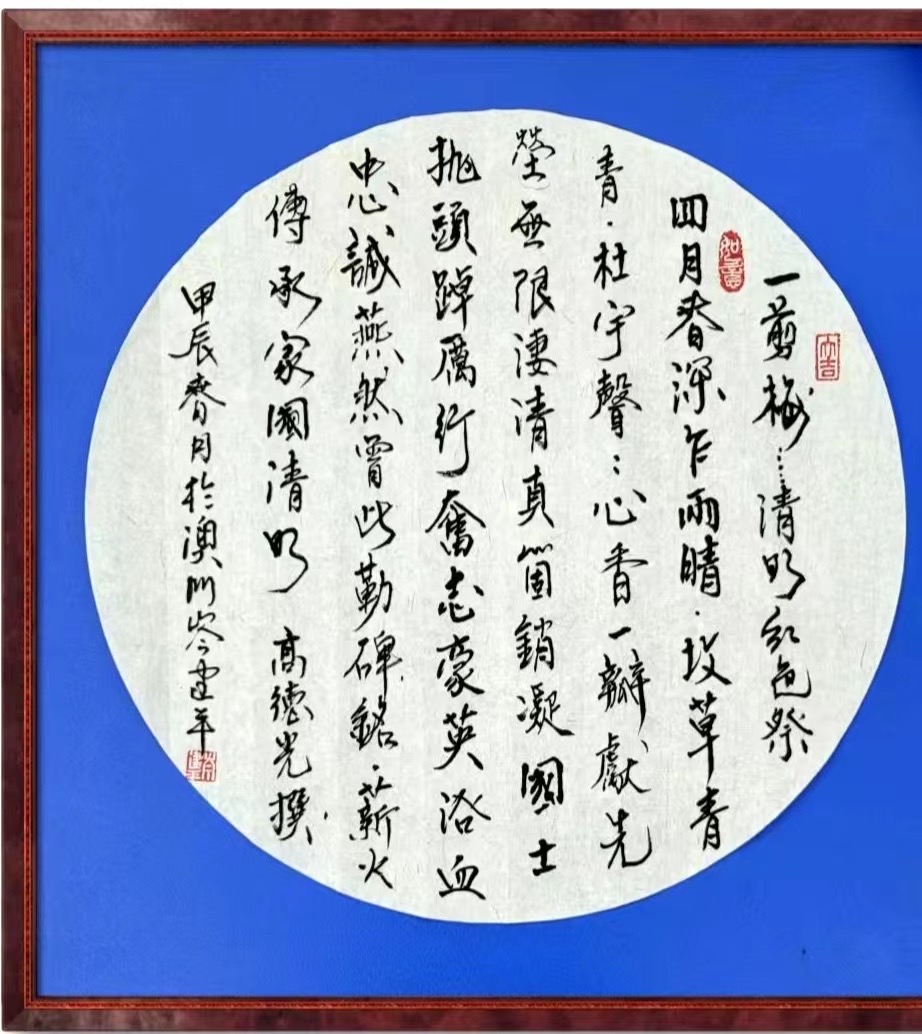 大吉
一剪梅……清明紅色祭
如意
四月春深乍雨晴·坟草青
青·杜宇聲:心香一瓣獻先
塋無限淒清真箇銷凝國士
拋頭踔厲行奮志豪英浴血
忠誠燕然曾此勒碑銘·薪火
傳承家國清明 高德光撰
甲辰春月於澳門岑建